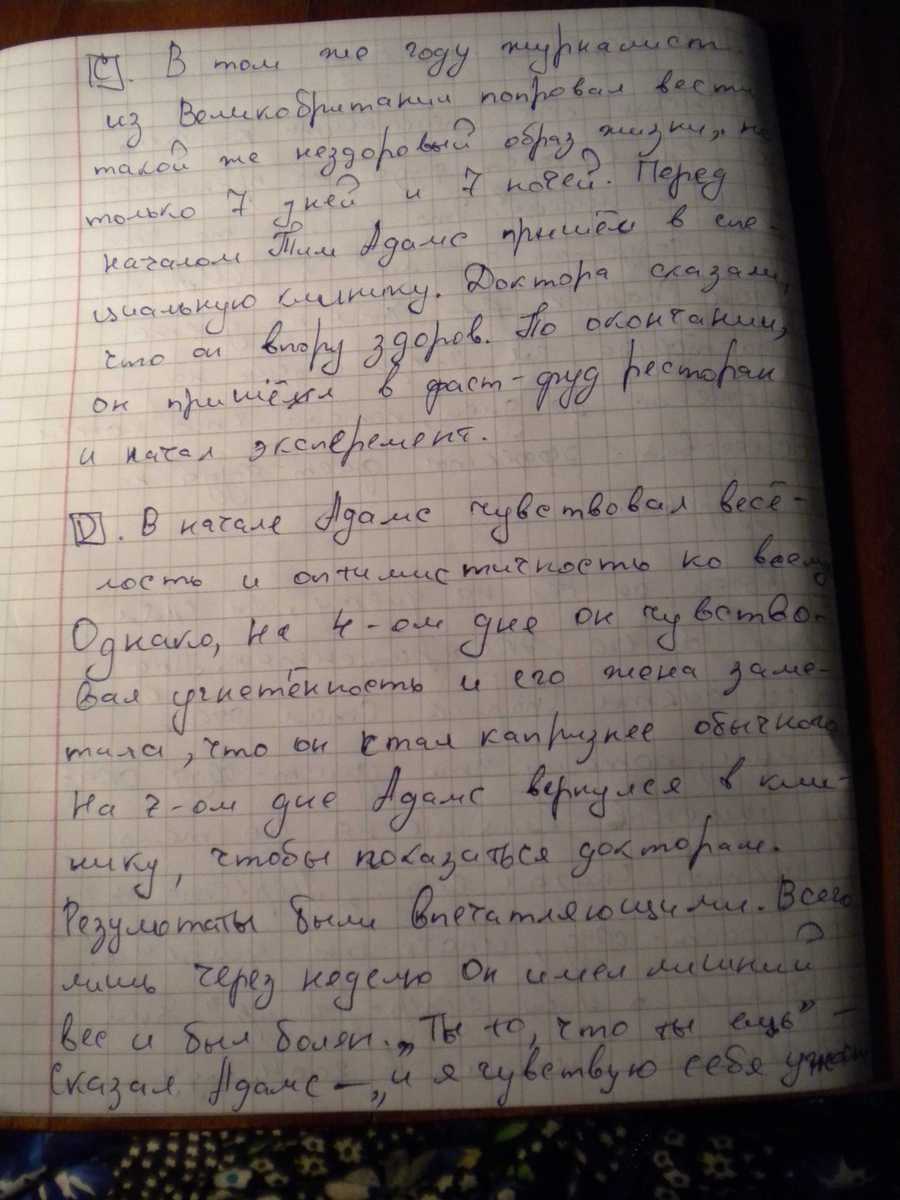 C. В том же году журналист
из Великобритании попровал вести
такой же нездоровый образ жизни, но
только 7 дней и 7 ночей. Перед
началом Тим Адамс пришёл в спе-
циальную клинику. Доктора сказали,
что он впору здоров. По окончании,
он пришёл в фаст-фуд ресторан
и начал эксперемент.
D. В начале Адамс чувствовал весё-
лость и оптимистичность ко всему
Однако, на 4-ом дне он чувство-
вал угнетённость и его жена заме-
тила, что он стал капризнее обычного
На 7-ом дне Адамс вернулся в кли-
нику, чтобы показаться докторам.
Резултаты были впечатляющими. Всего
лишь через неделю он имел лишний
вес и был болен. „Ты то, что ты ешь" –
Сказал Адамс –„и я чувствую себя